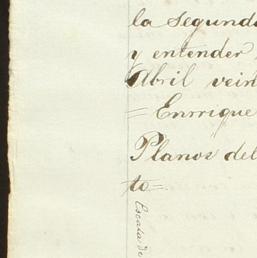 la Segunda
y entender
Abril vein
= Enrrique
Planos del
to=
Escala de